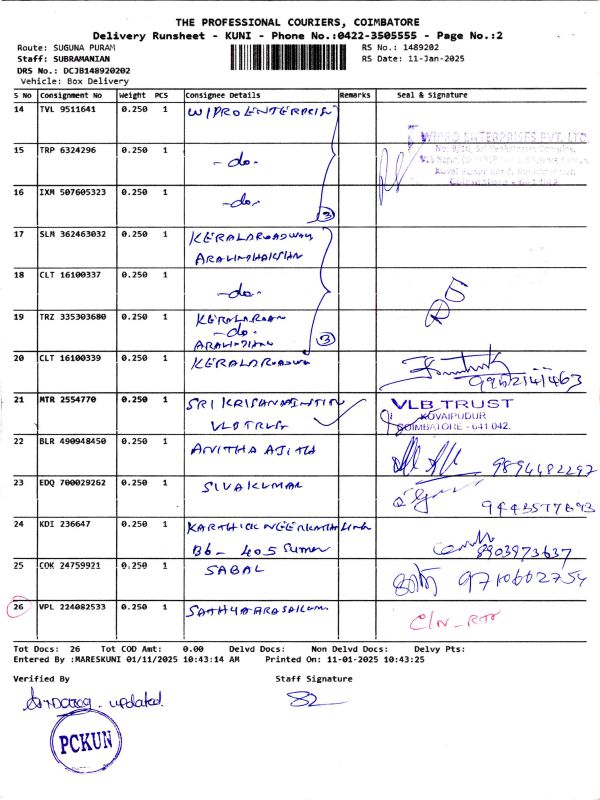 THE PROFESSIONAL COURIERS, COIMBATORE
Delivery Runsheet - KUNI - Phone No.:0422-3505555 - Page No.:2
Route: SUGUNA PURAM
RS No.: 1489202
Staff: SUBRAMANIAN
RS Date: 11-Jan-2025
DRS No.: DCJB148920202
Vehicle: Box Delivery
S No Consignment No Weight PCS Consignee Details Remarks Seal & Signature
14 TVL 9511641 0.250 1 WIPRO ENTERPRIS
WIPRO ENTERPRISES PVT. LTD
15 TRP 6324296 0.250 1 -do-
16 IXM 507605323 0.250 1 -do-
3
17 SLM 362463032 0.250 1 KERALA ROADWAY
18 CLT 16100337 0.250 1 -do-
19 TRZ 335303680 0.250 1 KERALA
-do-
3
20 CLT 16100339 0.250 1 KERALA
21 MTR 2554770 0.250 1 SRI KRISHNA
VLB TRUST
VLB TRUST
KOVAIPUDUR
COIMBATORE - 641 042.
22 BLR 490948450 0.250 1 ANITHA AJITH
9894482297
23 EDQ 700029262 0.250 1 SIVAKUMAR
24 KDI 236647 0.250 1 KARTHICK
B6 - 405
8903973637
25 COK 24759921 0.250 1 SABAL
9710662754
26 VPL 224082533 0.250 1
C/N - RTO
Tot Docs: 26 Tot COD Amt: 0.00 Delvd Docs: Non Delvd Docs: Delvy Pts:
Entered By :MARESKUNI 01/11/2025 10:43:14 AM Printed On: 11-01-2025 10:43:25
Verified By Staff Signature
updated
PCKUN